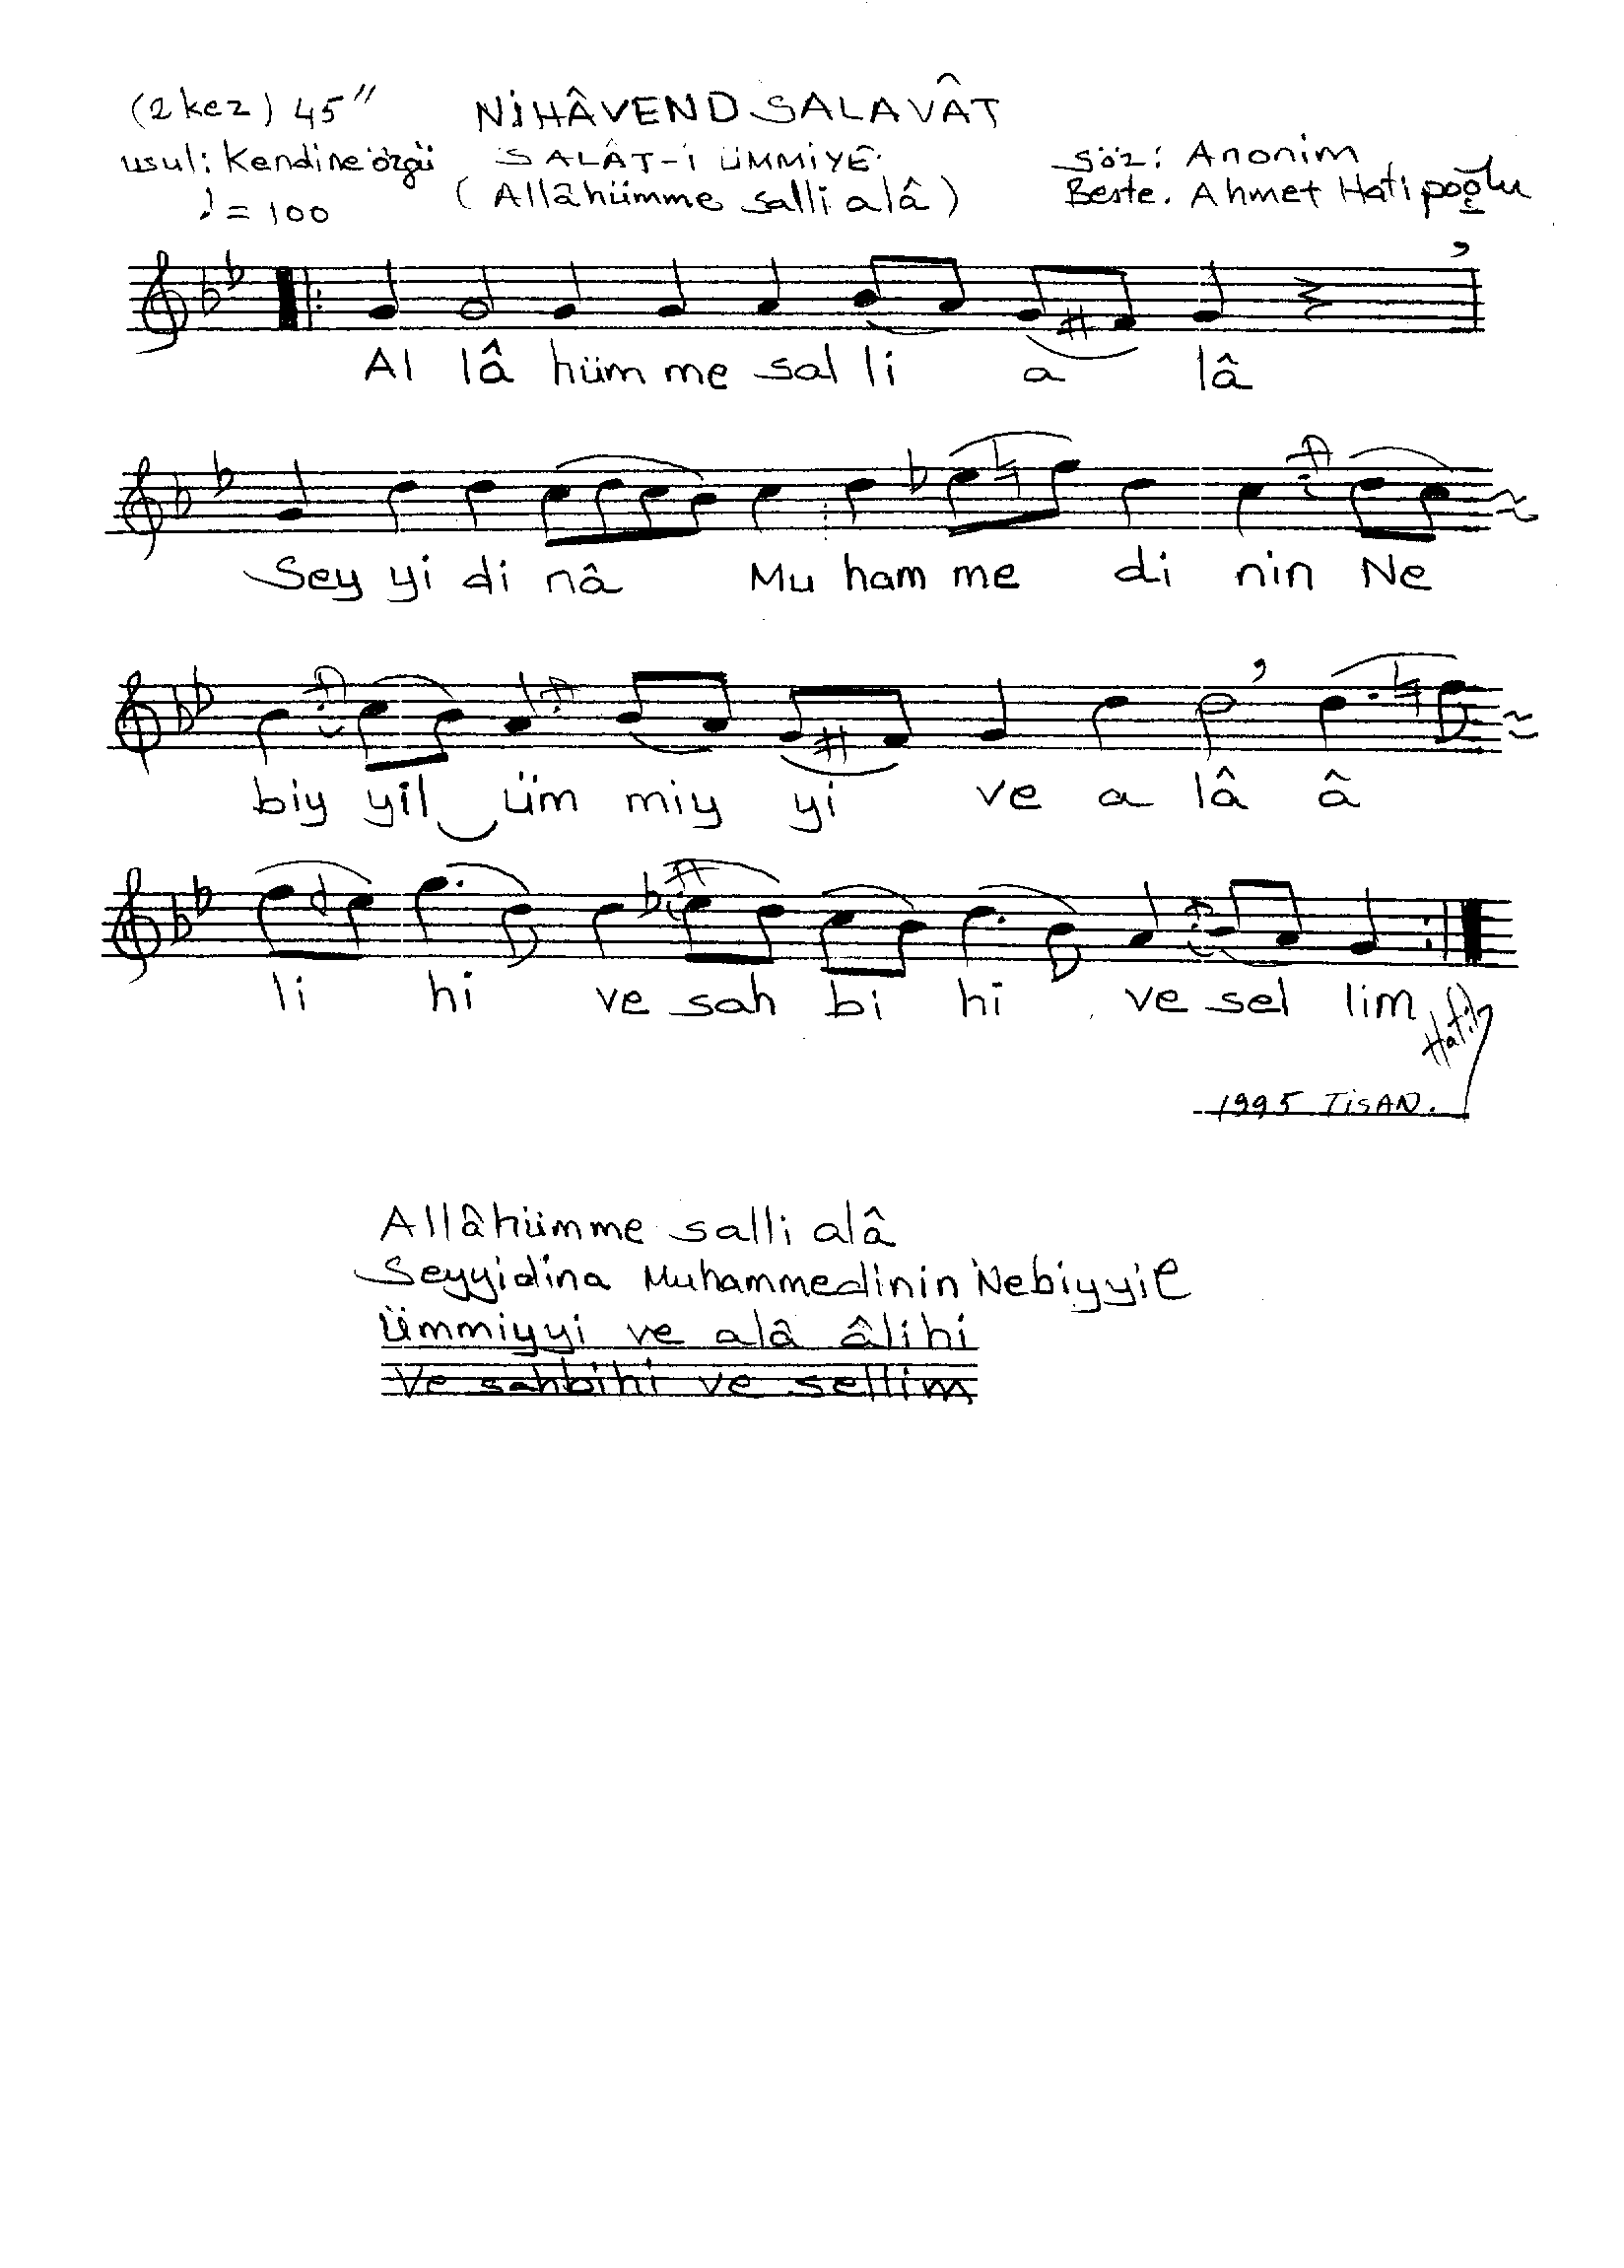 (2 kez) 45"
NİHÂVEND SALAVÂT
usul: Kendine özgü
SALÂT-I ÜMMİYE
söz: Anonim
♩ = 100
(Allâhümme salli alâ)
Beste. Ahmet Hatipoğlu
Al lâ hüm me sal li a lâ
Sey yi di nâ Mu ham me di nin Ne
biy yil üm miy yi ve a lâ â
li hi ve sah bi hi ve sel lim
1995 TİSAN.
Allâhümme salli alâ
Seyyidina Muhammedinin Nebiyyil
Ümmiyyi ve alâ âlihi
Ve sahbihi ve sellim